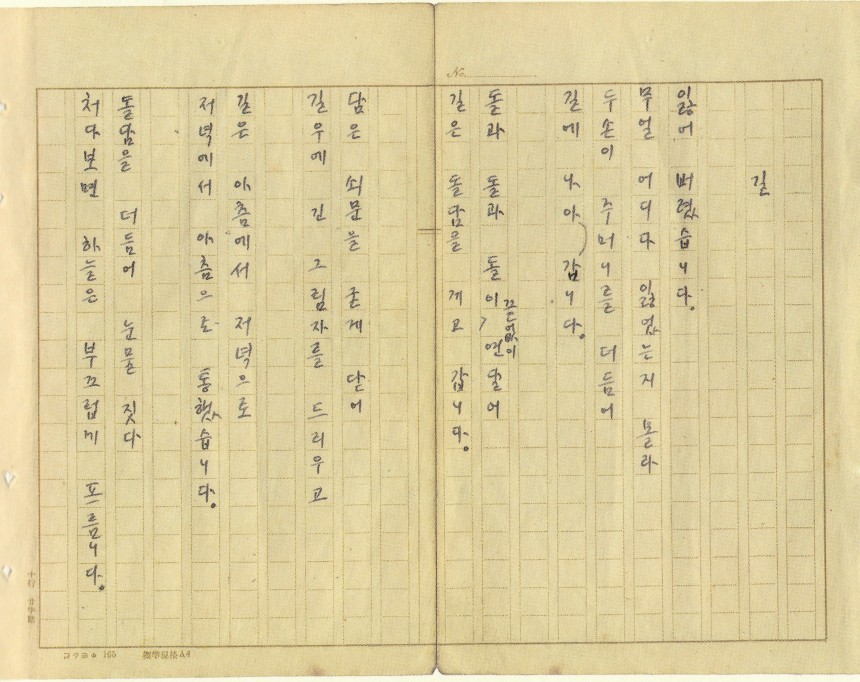 No.
길
잃어 버렸습니다.
무얼 어디다 잃었는지 몰라
두손이 주머니를 더듬어
길에 나아갑니다.
돌과 돌과 돌이 끝없이 연달어
길은 돌담을 게고 갑니다.
담은 쇠문을 굳게 닫어
길우에 긴 그림자를 드리우고
길은 아츰에서 저녁으로
저녁에서 아츰으로 통했습니다.
돌담을 더듬어 눈물 짓다
처다보면 하늘은 부끄럽게 프름니다.
コクヨ 165 標準規格A4
十行 廿字詰